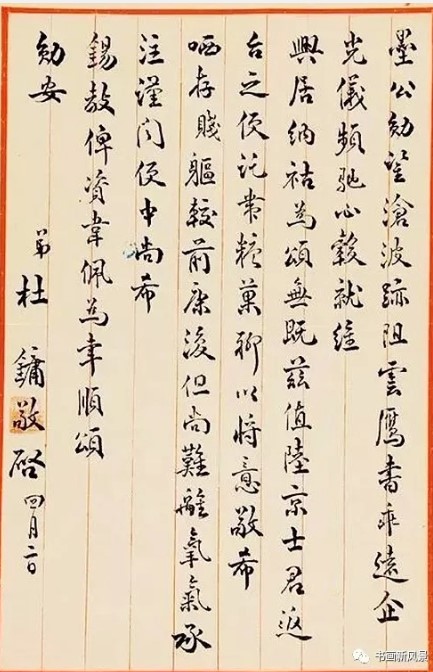 墨公勛鑒滄波跡阻雲鴈書乖遠企
光儀頻馳心轂就維
興居納祜為頌無既茲值陸京士君返
台之便託帶糖菓聊以將意敬希
哂存賤軀較前康復但尚難離氧氣承
注謹聞便中尚希
錫教俾資韋佩為幸順頌
勛安
弟杜鏞敬啓四月二日
书画新风景